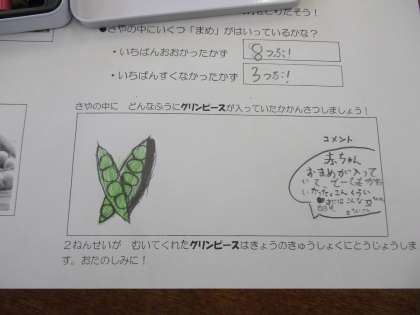 さやの中にいくつ「まめ」がはいっているかな？
・いちばんおおかったかず 8つぶ!
・いちばんすくなかったかず 3つぶ!
さやの中に どんなふうにグリンピースが入っていたかかんさつしましょう！
コメント
赤ちゃん
まめが入って
いて、
２ねんせいが むいてくれたグリンピースはきょうのきゅうしょくにとうじょうしま
す。おたのしみに！